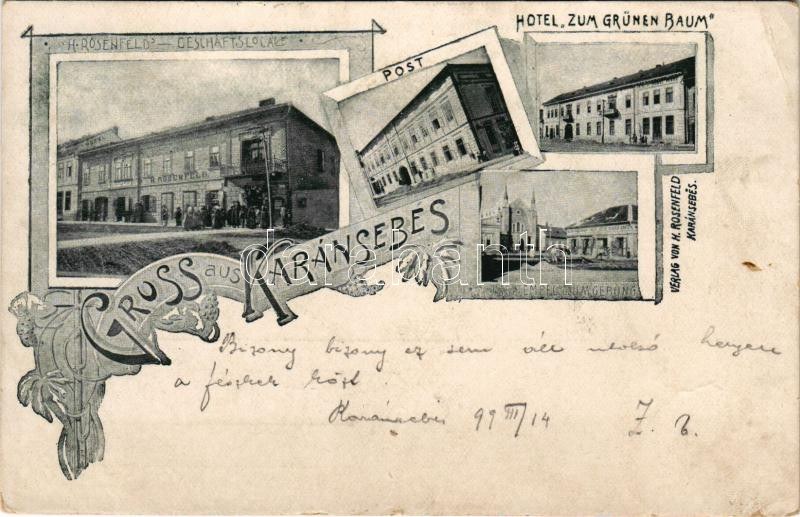 "H. ROSENFELD'S — GESCHÄFTSLOCALE"
POST
HOTEL „ZUM GRÜNEN BAUM"
H. ROSENFELD
VERLAG VON H. ROSENFELD
KARÁNSEBÉS.
GRUSS aus KARÁNSEBES
Darabanth
UMGEBUNG
Bizony bizony ez sem áll utolsó helyen
a fészkek közt.
Karánsebes 99 III/14 Z. b.